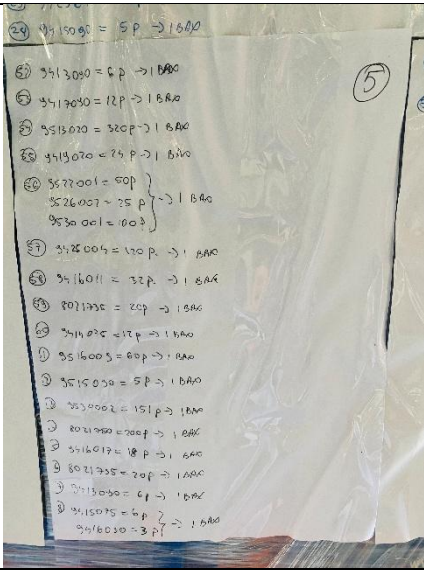 (24) 9415090 = 5P → 1 BAX
5
9413090 = 6P → 1 BAX
9417090 = 12P → 1 BAX
9513020 = 320P → 1 BAX
(55) 9419020 = 24 P → 1 BAX
(56) 9522001 = 50P
9526002 = 25 P → 1 BAX
9530001 = 100
(57) 9426004 = 120 P. → 1 BAX
(58) 9416011 = 32P. → 1 BAX
(59) 8021735 = 20P → 1 BAX
(60) 9414025 = 12P → 1 BAX
9516009 = 60P → 1 BAX
9515090 = 5P → 1 BAX
9530002 = 151P → 1 BAX
8021750 = 200P → 1 BAX
9416017 = 18 P → 1 BAX
8021735 = 20P → 1 BAX
9413090 = 6P → 1 BAX
9415075 = 6P
9416030 = 3P → 1 BAX